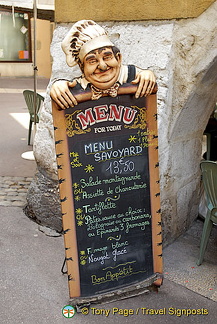 MENU
FOR TODAY
MENU
SAVOYARD
13,50
Salade montagnarde
ou
Assiette de Charcuterie
Tartiflette
ou
Pâtes sauce au choix :
Bolognaise ou carbonara,
ou Epinards 3 fromages
Fromage blanc
ou
Nougat glacé
Bon Appétit
© Tony Page / Travel Signposts